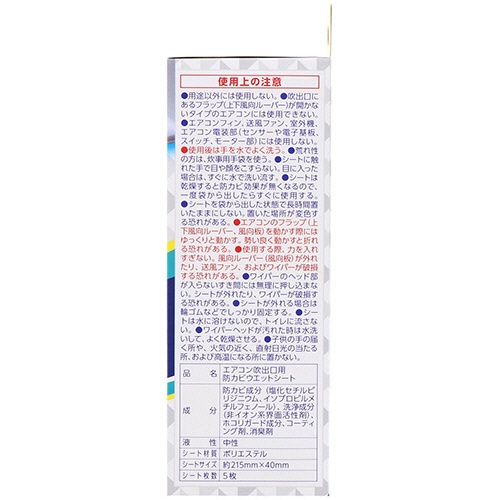 使用上の注意
●用途以外には使用しない。●吹出口に
あるフラップ(上下風向ルーバー)が開かな
いタイプのエアコンには使用できない。
●エアコンフィン、送風ファン、室外機、
エアコン電装部(センサーや電子基板、
スイッチ、モーター部)には使用しない。
●使用後は手を水でよく洗う。●荒れ性
の方は、炊事用手袋を使う。●シートに触
れた手で目や顔をこすらない。目に入った
場合は、すぐに水で洗い流す。●シートは
乾燥すると防カビ効果が無くなるので、
一度袋から出したらすぐに使用する。
●シートを袋から出した状態で長時間置
いたままにしない。置いた場所が変色す
る恐れがある。●エアコンのフラップ(上
下風向ルーバー、風向板)を動かす際には
ゆっくりと動かす。勢い良く動かすと折れ
る恐れがある。●使用する際、力を入れ
すぎない。風向ルーバー(風向板)が外れ
たり、送風ファン、およびワイパーが破損
する恐れがある。●ワイパーのヘッド部
が入らないすき間には無理に押し込まな
い。シートが外れたり、ワイパーが破損す
る恐れがある。●シートが外れる場合は
輪ゴムなどでしっかり固定する。●シー
トは水に溶けないので、トイレに流さな
い。●ワイパーヘッドが汚れた時は水洗
いして、よく乾燥させる。●子供の手の届
く所や、火気の近く、直射日光の当たる
所、および高温になる所に置かない。
品名 エアコン吹出口用
防カビウエットシート
成分 防カビ成分(塩化セチルピ
リジニウム、イソプロピルメ
チルフェノール)、洗浄成分
(非イオン系界面活性剤)、
ホコリガード成分、コーティ
ング剤、消臭剤
液性 中性
シート材質 ポリエステル
シートサイズ 約215mm×40mm
シート枚数 5枚